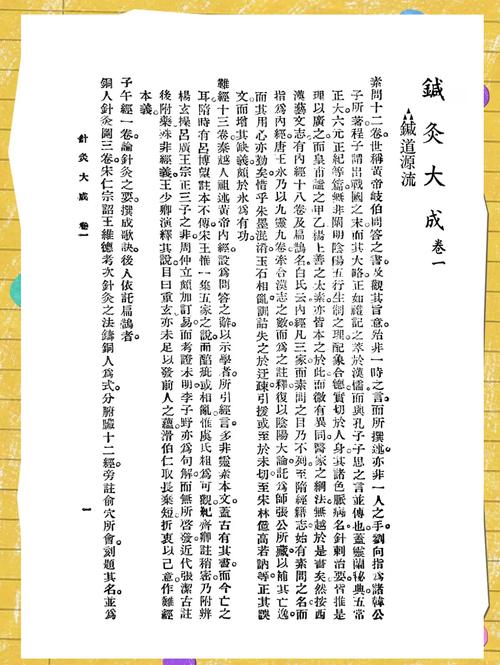 鍼灸大成 卷一
鍼道源流
素問十二卷世稱黃帝岐伯問答之書及觀其旨意殆非一時之言而所撰述亦非一人之手劉向指爲諸韓公
子所著程子謂出戰國之末而其大略正如禮記之萃於漢儒而與孔子子思之言並傳也蓋靈蘭秘典五常
正大六元正紀等篇無非闡明陰陽五行生制之理配象合德實切於人身其諸色脈病名針刺治要皆推是
理以廣之而皇甫謐之甲乙楊上善之太素亦皆本之於此而微有異同醫家之綱法無越於是書矣然按西
漢藝文志有內經十八卷及扁鵲名白氏云內經凡三家而素問之目乃不列至隋經籍志始有素問之名而
指爲內經唐王氷乃以九靈九卷牽合漢志之數而爲之註釋復以陰陽大論託爲師張公所藏以補其亡逸
而其用心亦勤矣惜乎朱墨混淆玉石相亂訓詁失之於迂疎引援或至於未切至宋林億高若訥等正其誤
文而增其缺義頗於氷爲有功
難經十三卷秦越人祖述黃帝內經設爲問答之辭以示學者所引經言多非靈素本文蓋古有其書而今亡之
耳隋時有呂博望註本不傳宋王惟一集五家之說而醇疵或相亂惟虞氏粗爲可觀紀齊卿註稍密乃附辨
楊玄操呂廣王宗正三子之非周仲立頗加訂易而考證未明李子野亦爲句解而無所啓發近代張潔古註
後附藥殊非經義王少卿演繹其說目曰重玄亦未足以發前人之蘊滑伯仁取長棄短折衷以己意作難經
本義
子午經一卷論針灸之要撰成歌訣後人依託扁鵲者
銅人針灸圖三卷宋仁宗詔王維德考次針灸之法鑄銅人爲式分腑臟十二經旁註俞穴所會刻題其名並爲
針灸大成 卷一
一